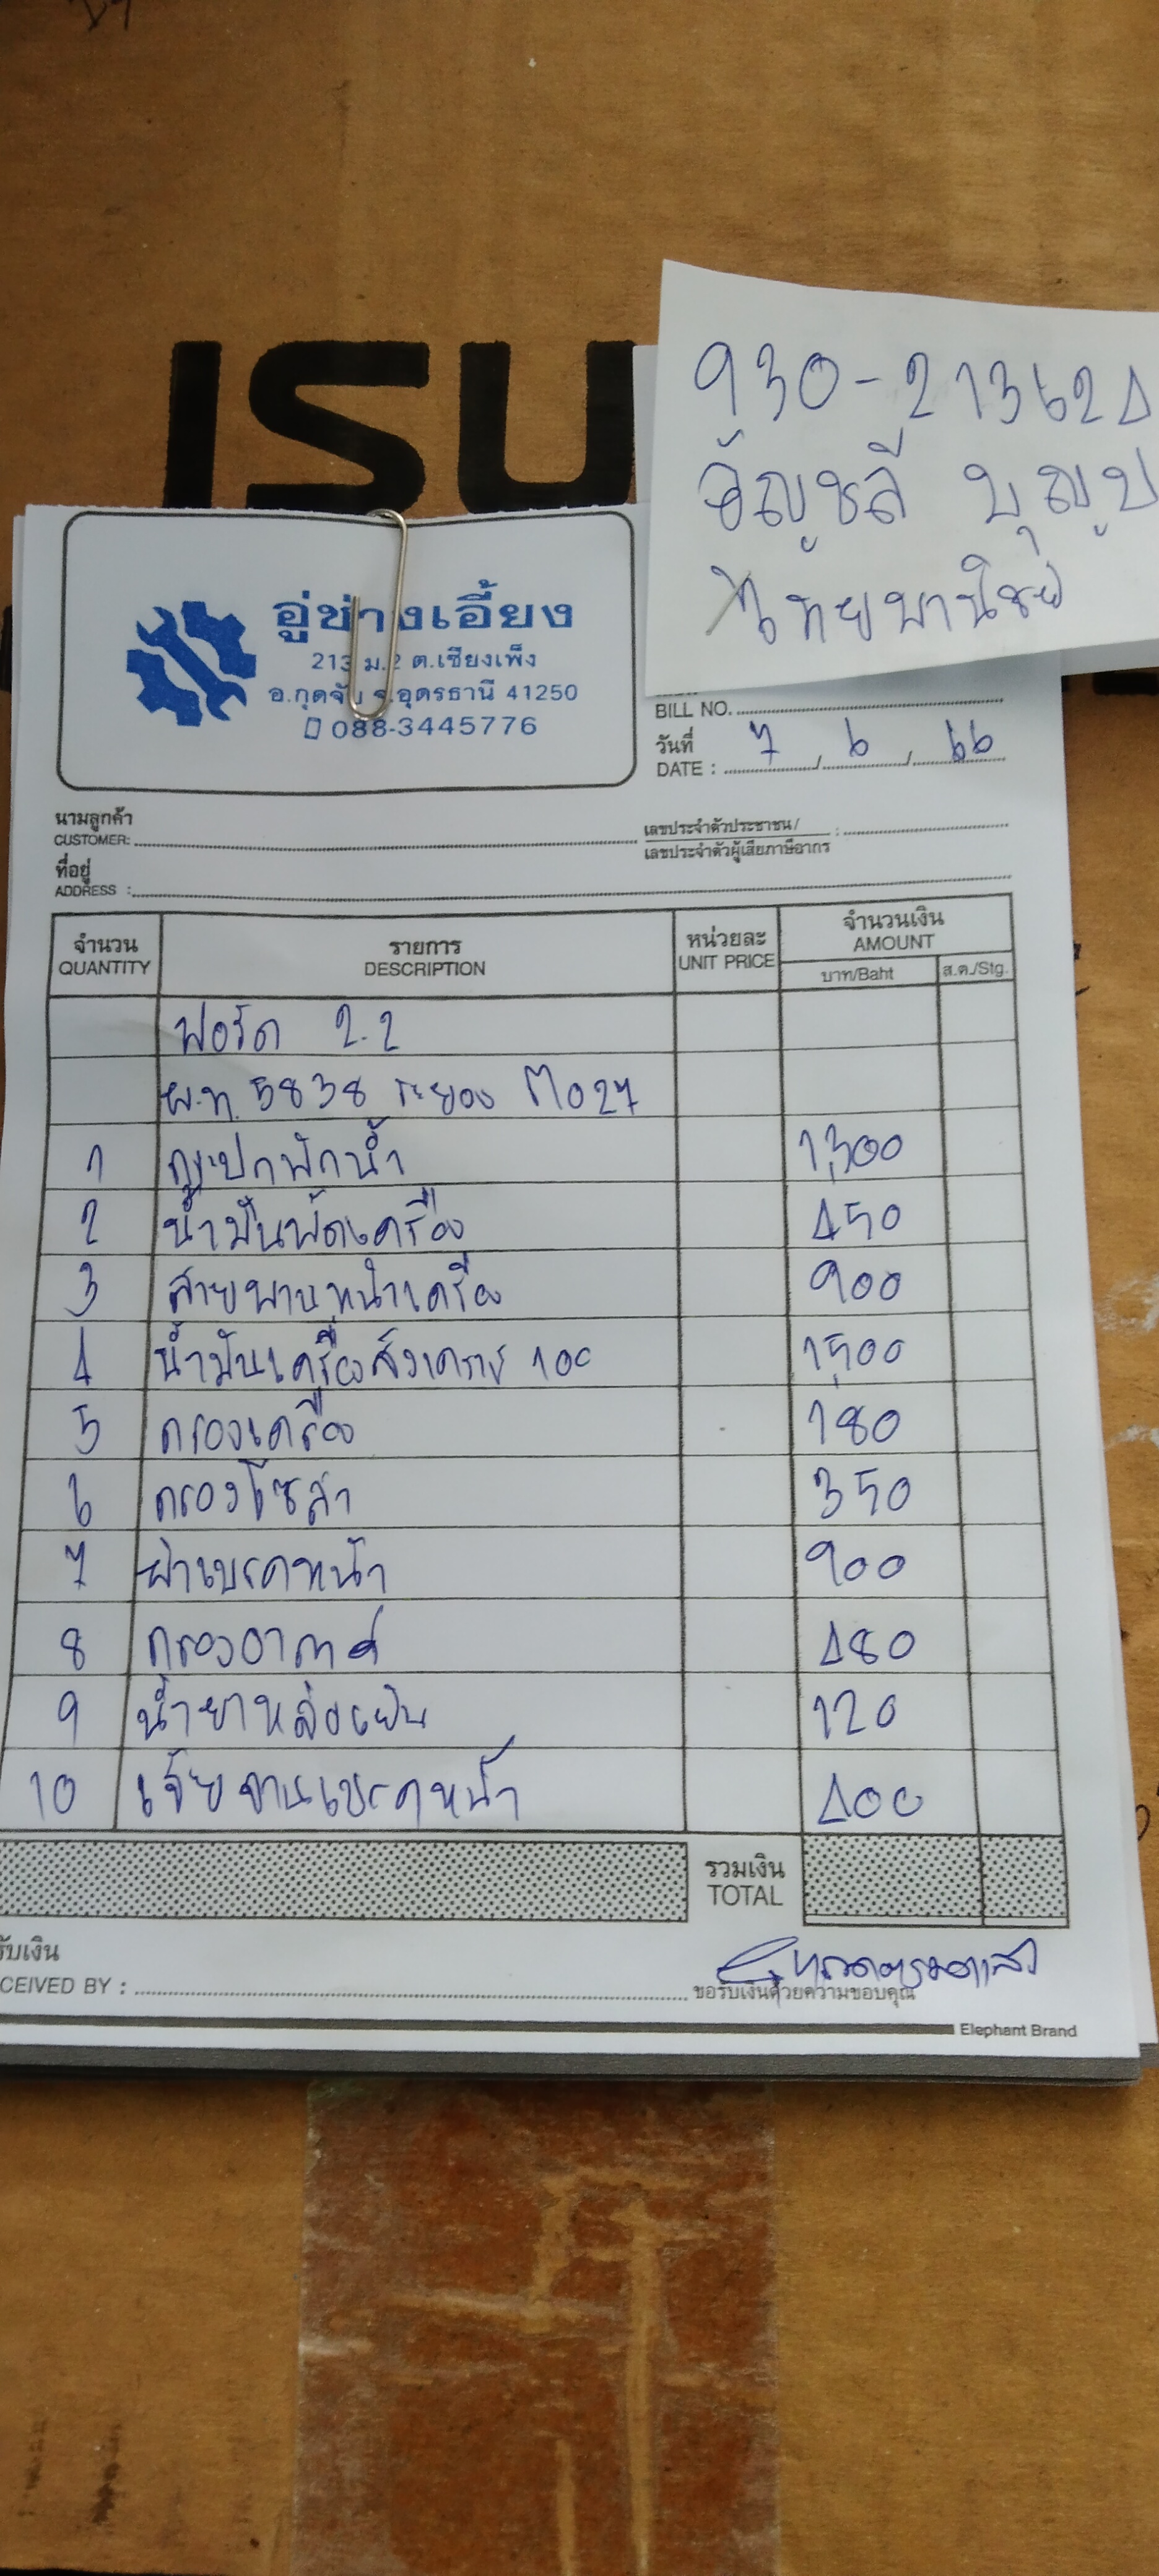 ISU
930-213624
อัญชลี บุญป
ไทยพานิชย์
อู่ช่างเอี้ยง
213 ม.2 ต.เชียงเพ็ง
อ.กุดจับ จ.อุดรธานี 41250
088-3445776
BILL NO.
วันที่
DATE : 7 / 6 / 66
นามลูกค้า
CUSTOMER:
เลขประจำตัวประชาชน/ :
เลขประจำตัวผู้เสียภาษีอากร
ที่อยู่
ADDRESS :
จำนวน รายการ หน่วยละ จำนวนเงิน
QUANTITY DESCRIPTION UNIT PRICE AMOUNT
บาท/Baht ส.ต./Stg.
ฟอร์ด 2.2
ผ.ท. 5838 ระยอง
1 กระปกพักน้ำ 1,300
2 น้ำมันพัดเครื่อง 450
3 สายพานหน้าเครื่อง 900
4 น้ำมันเครื่องสังเคราะ 100 1,500
5 กรองเครื่อง 180
6 กรองโซล่า 350
7 ผ้าเบรคหน้า 900
8 กรองอากาศ 480
9 น้ำยาหล่อเย็น 120
10 เจียจานเบรคหน้า 400
รวมเงิน
TOTAL
รับเงิน
CEIVED BY :
ขอรับเงินด้วยความขอบคุณ
Elephant Brand